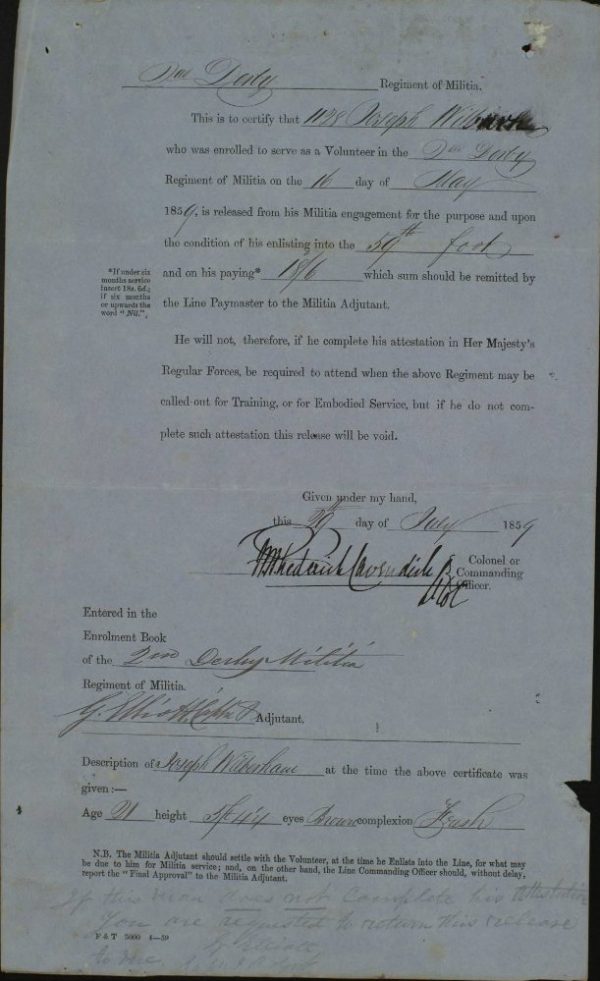 2nd Derby Regiment of Militia.
This is to certify that 1128 Joseph
who was enrolled to serve as a Volunteer in the 2nd Derby
Regiment of Militia on the 16 day of May
1859, is released from his Militia engagement for the purpose and upon
the condition of his enlisting into the 59th foot
and on his paying* 18/6 which sum should be remitted by
the Line Paymaster to the Militia Adjutant.
*If under six
months service
insert 18s. 6d.;
if six months
or upwards the
word "Nil."
He will not, therefore, if he complete his attestation in Her Majesty's
Regular Forces, be required to attend when the above Regiment may be
called out for Training, or for Embodied Service, but if he do not com-
plete such attestation this release will be void.
Given under my hand,
this day of July 1859
Cavendish Colonel or
Commanding
Officer.
Entered in the
Enrolment Book
of the 2nd Derby Militia
Regiment of Militia.
G. Elliott Adjutant.
Description of Joseph Wibersham at the time the above certificate was
given:—
Age 21 height 5f 4¼ eyes Brown complexion Fresh
N.B. The Militia Adjutant should settle with the Volunteer, at the time he Enlists into the Line, for what may
be due to him for Militia service; and, on the other hand, the Line Commanding Officer should, without delay,
report the "Final Approval" to the Militia Adjutant.
If this man does not complete his attestation
you are requested to return this release
F & T 5000 4—59
to me.